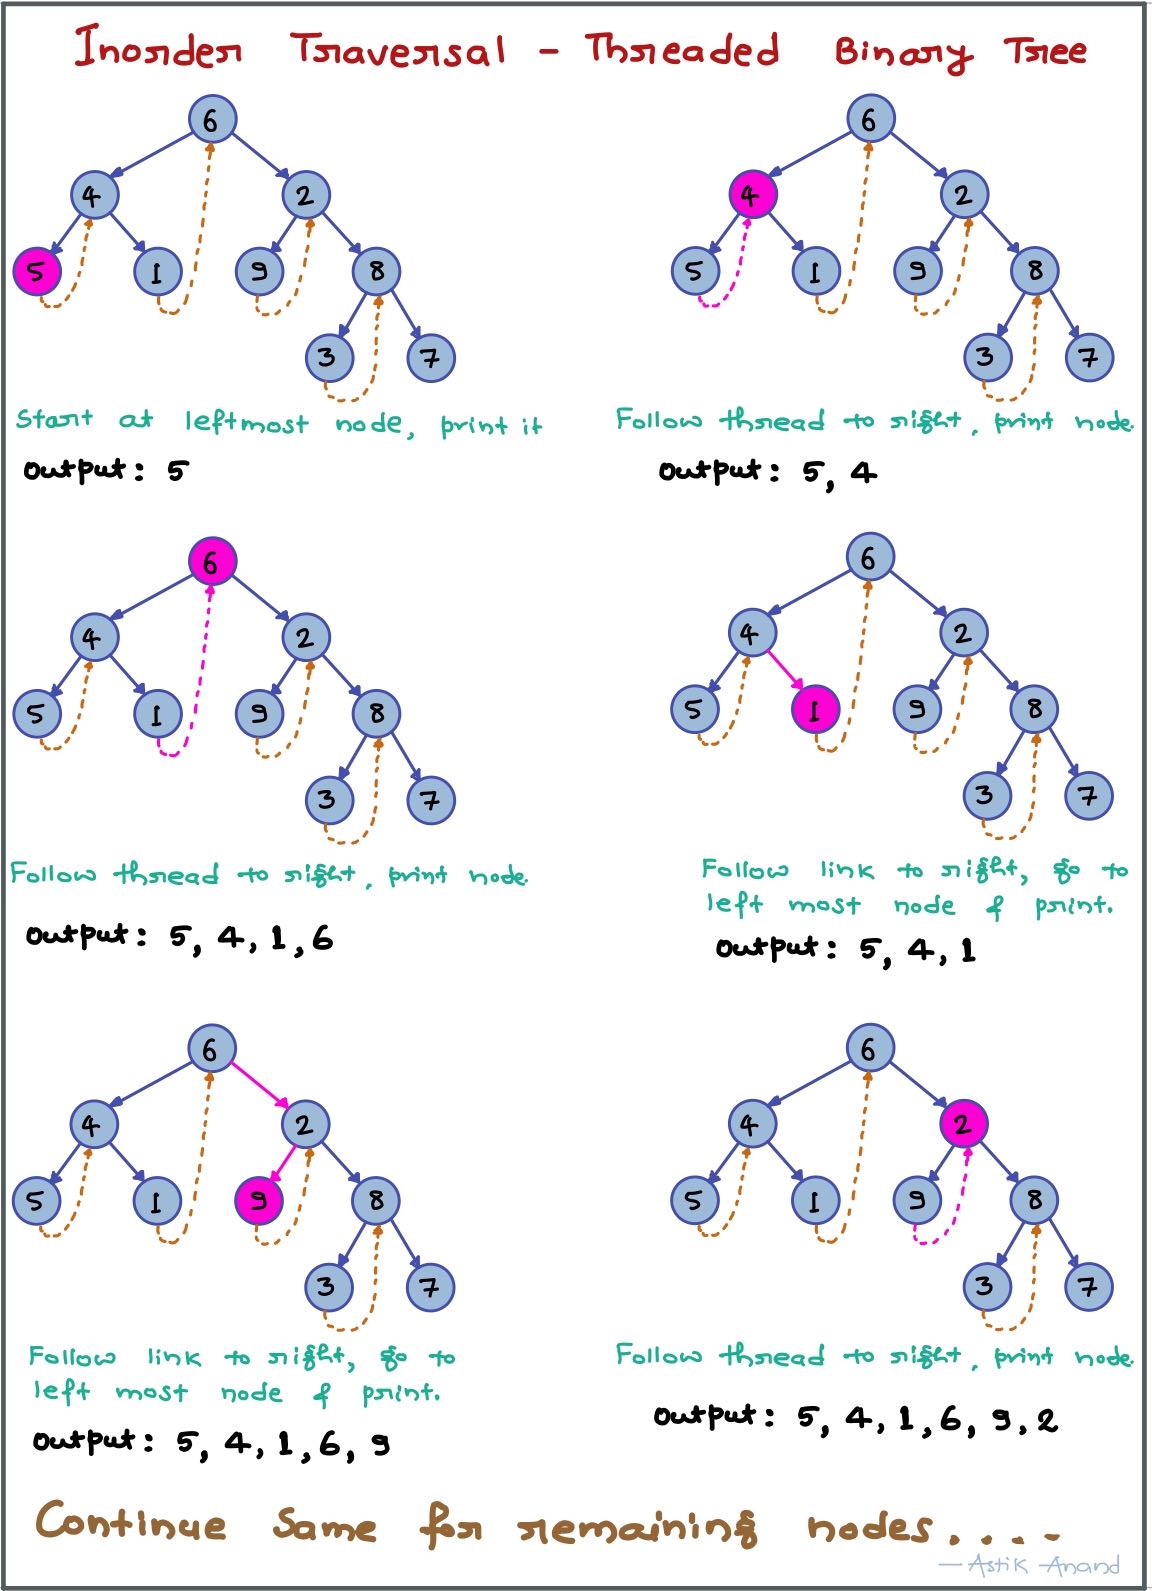 Inorder Traversal - Threaded Binary Tree
6
4 2
5 1 9 8
3 7
Start at leftmost node, print it
Output: 5
6
4 2
5 1 9 8
3 7
Follow thread to right, print node.
Output: 5, 4
6
4 2
5 1 9 8
3 7
Follow thread to right, print node.
Output: 5, 4, 1, 6
6
4 2
5 1 9 8
3 7
Follow link to right, go to
left most node & print.
Output: 5, 4, 1
6
4 2
5 1 9 8
3 7
Follow link to right, go to
left most node & print.
Output: 5, 4, 1, 6, 9
6
4 2
5 1 9 8
3 7
Follow thread to right, print node.
Output: 5, 4, 1, 6, 9, 2
Continue Same for remaining nodes....
— Astik Anand